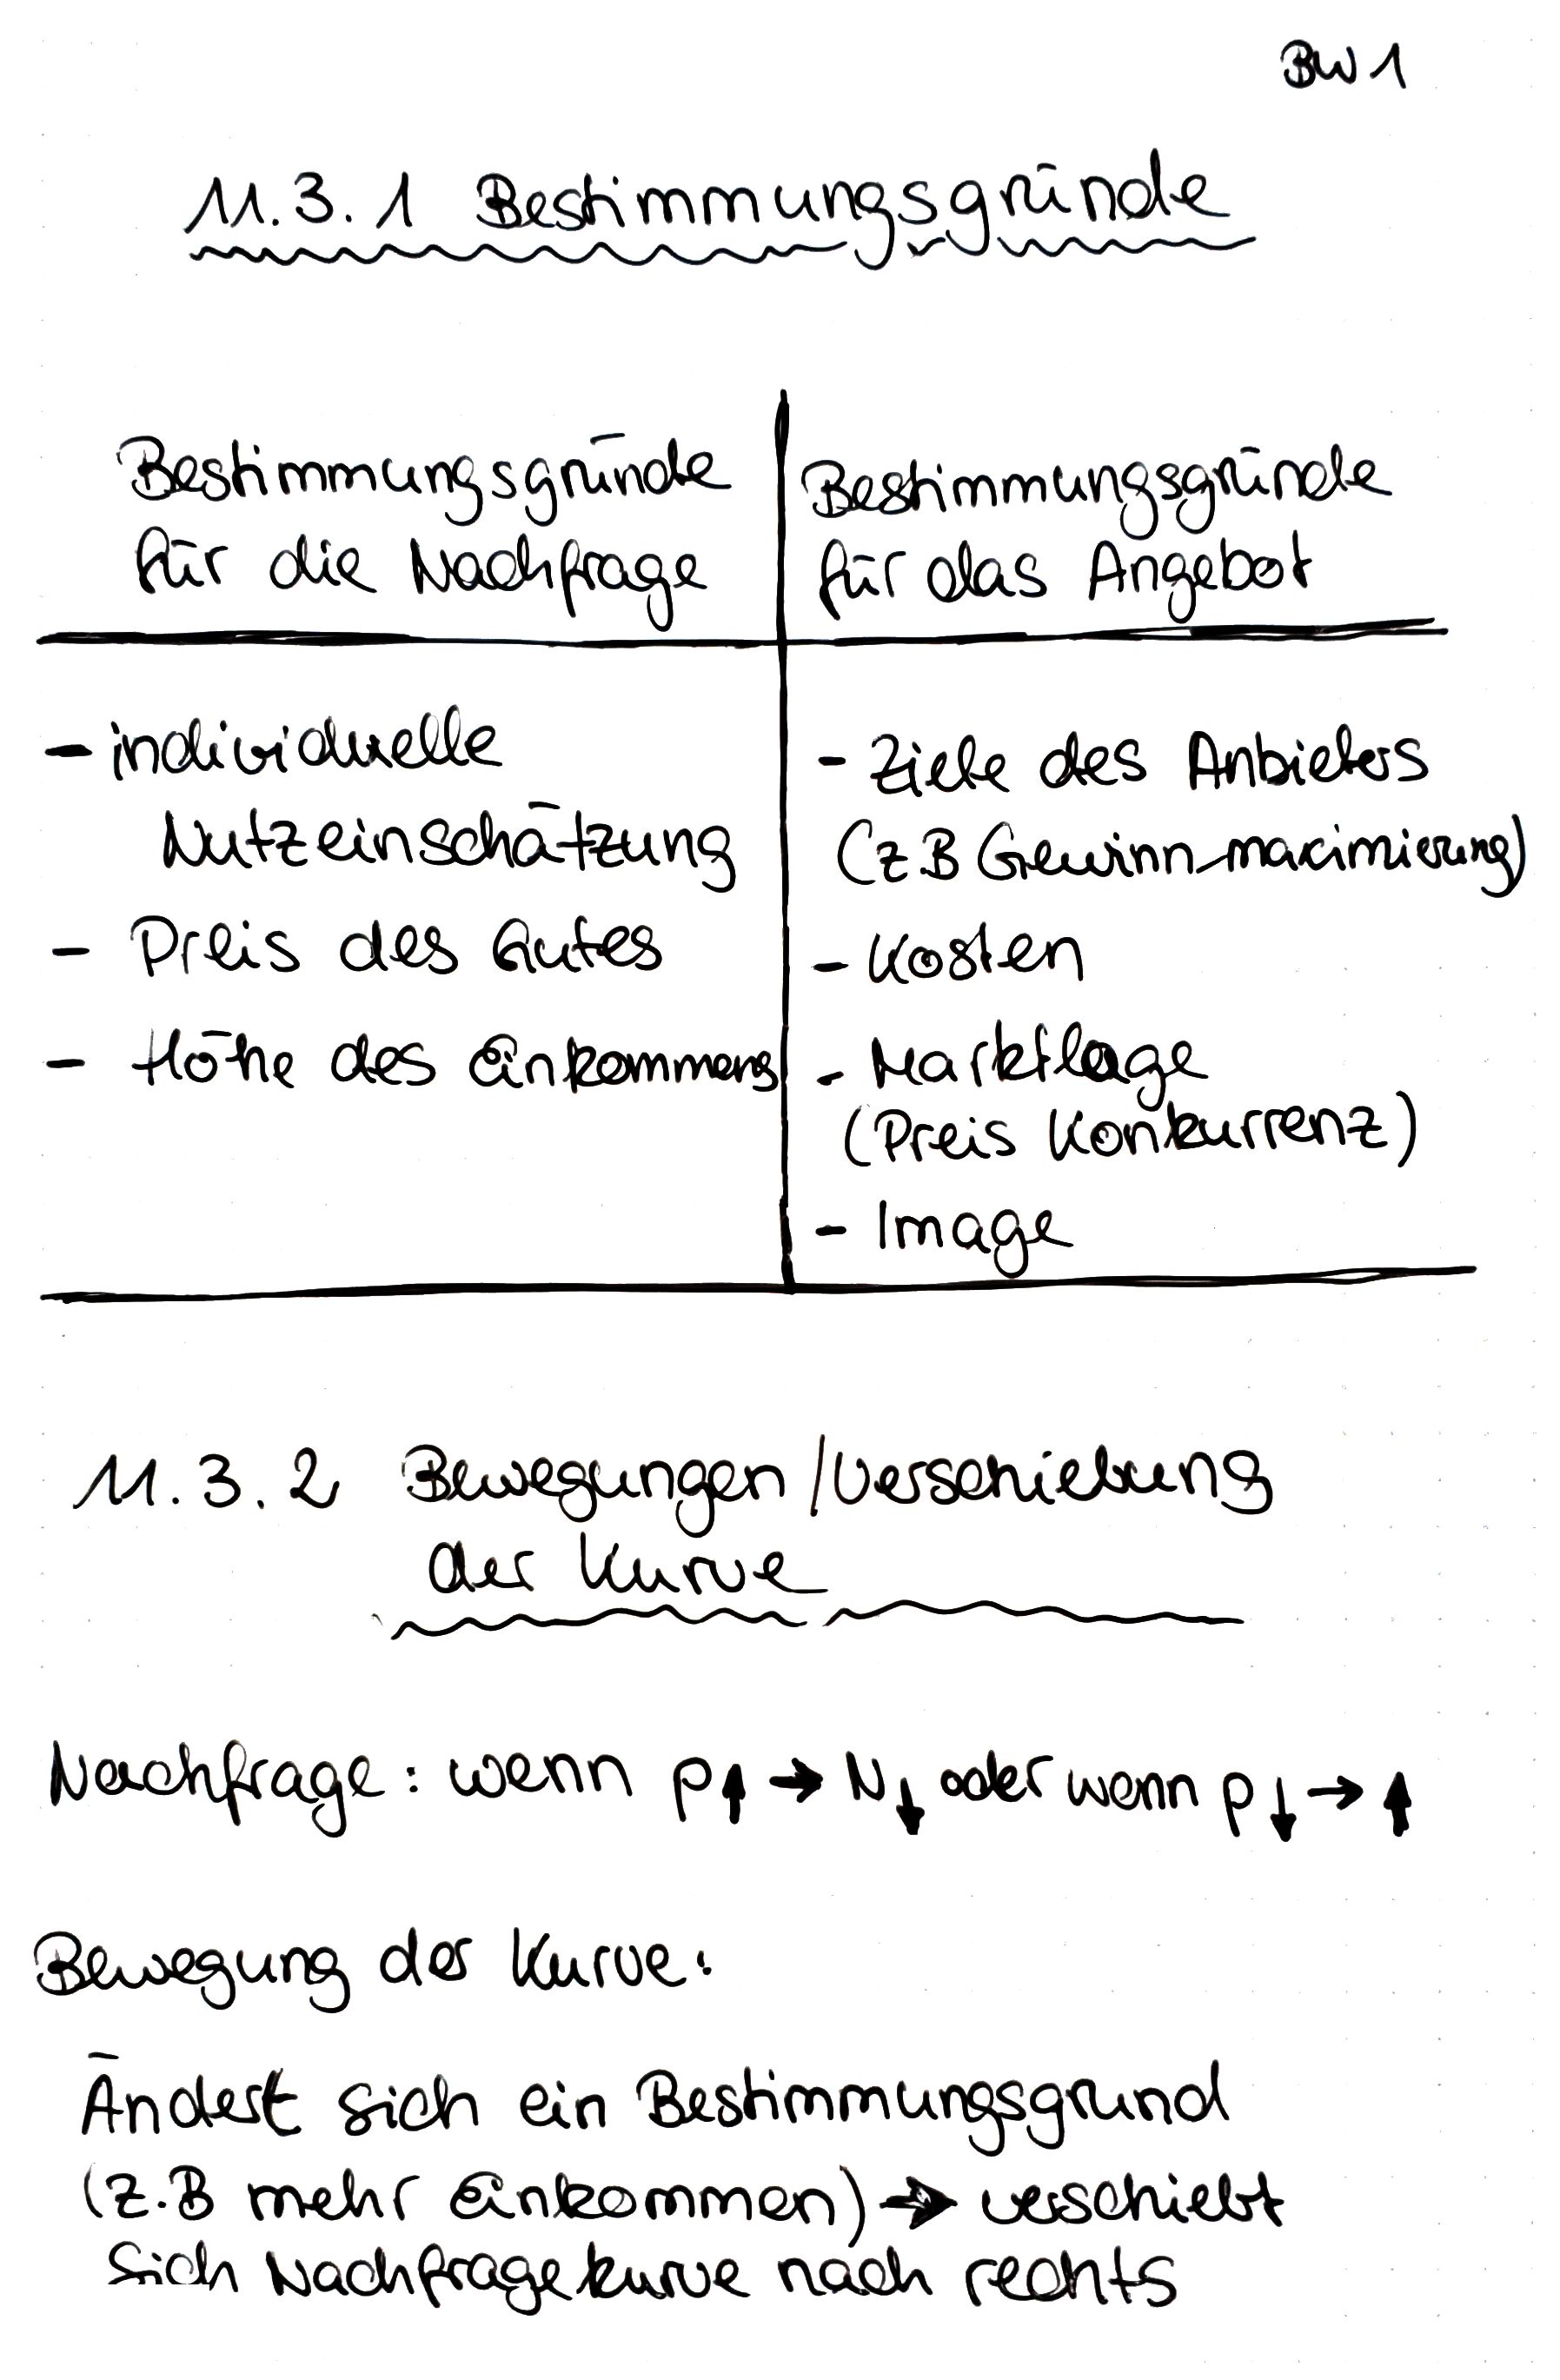 BW 1
11.3.1 Bestimmungsgründe
Bestimmungsgründe
für die Nachfrage
- individuelle
Nutzeinschätzung
- Preis des Gutes
- Höhe des Einkommens
Bestimmungsgründe
für das Angebot
- Ziele des Anbieters
(z.B Gewinn-maximierung)
- Kosten
- Marktlage
(Preis Konkurrenz)
- Image
11.3.2 Bewegungen/Verschiebung
der Kurve
Nachfrage: wenn p↑ → N↓ oder wenn p↓ → ↑
Bewegung der Kurve:
Ändert sich ein Bestimmungsgrund
(z.B mehr Einkommen) → verschiebt
sich Nachfragekurve nach rechts